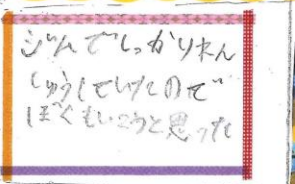 ジムでしっかりれん
しゅうしていたので
ぼくもいこうと思った